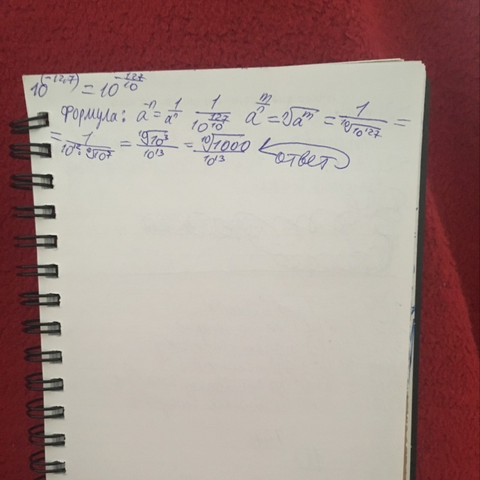 10^(-12,7) = 10^(-127/10)
Формула: a^(-n) = 1/a^n 1/10^(127/10) a^(m/n) = ⁿ√a^m = 1/¹⁰√10^127 =
= 1/(10^12 · ¹⁰√10^7) = ¹⁰√10^3/10^13 = ¹⁰√1000/10^13 ответ